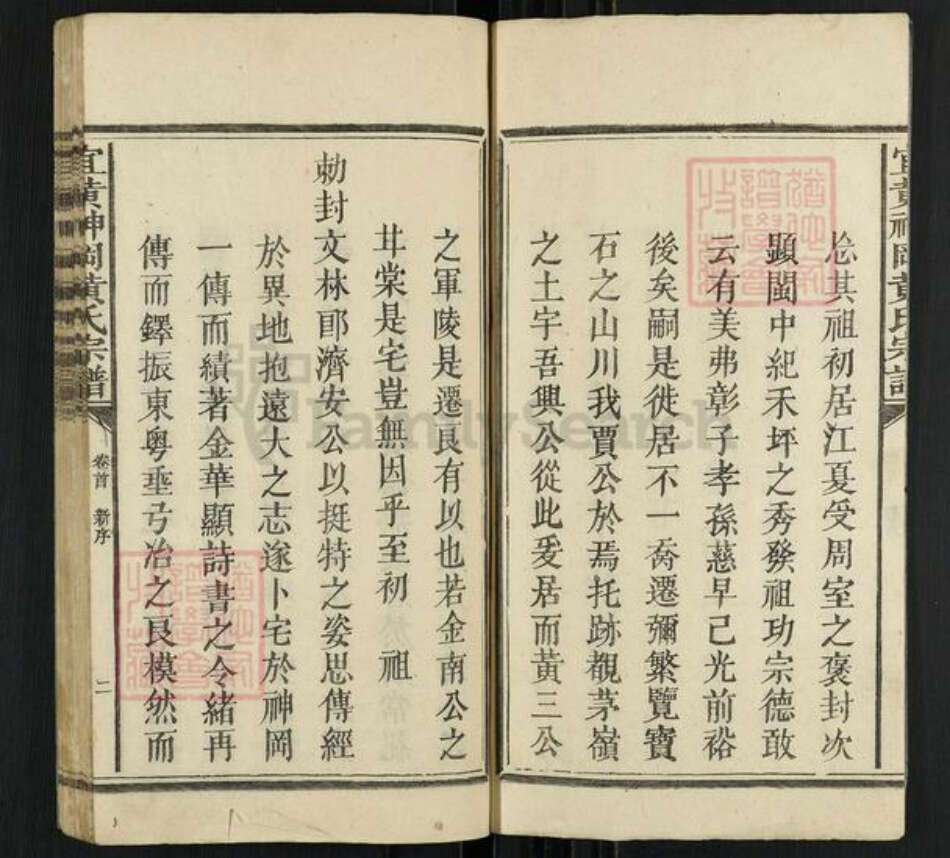 宜黄神岡黄氏宗譜
㤀其祖初居江夏受周室之褒封次
顯閩中紀禾坪之秀發祖功宗德敢
云有美弗彰子孝孫慈早已光前裕
後矣嗣是徙居不一喬遷彌繁覽寶
石之山川我賈公於焉托跡覩茅嶺
之土宇吾興公從此爰居而黃三公
之軍陵是遷良有以也若金南公之
甘棠是宅豈無因乎至初 祖
勅封文林郎濟安公以挺特之姿思傳經
於異地抱遠大之志遂卜宅於神岡
一傳而績著金華顯詩書之令緒再
傳而鐸振東粵垂弓冶之良模然而
宜黄神岡黄氏宗譜
卷首 新序 二
FamilySearch